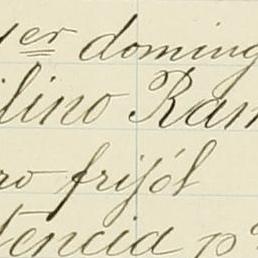 1er doming
ilino Ram
ro frijól
tencia pª